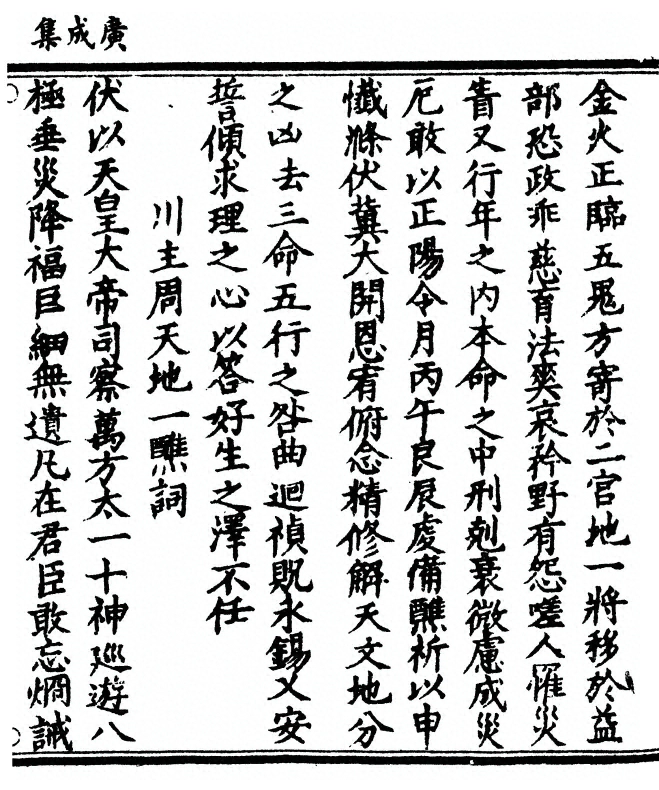 廣成集
金火正臨五鬼方寄於二宮地一將移於益
部恐政乖慈育法爽哀矜野有怨嗟人罹災
眚又行年之内本命之中刑剋衰微慮成災
厄敢以正陽令月丙午良辰虔備醮祈以申
懺滌伏冀大開恩宥俯念精修解天文地分
之凶去三命五行之咎曲迴禎貺永錫乂安
誓傾求理之心以答好生之澤不任
川主周天地一醮詞
伏以天皇大帝司察萬方太一十神廵遊八
極垂災降福巨細無遺凡在君臣敢忘烱誡